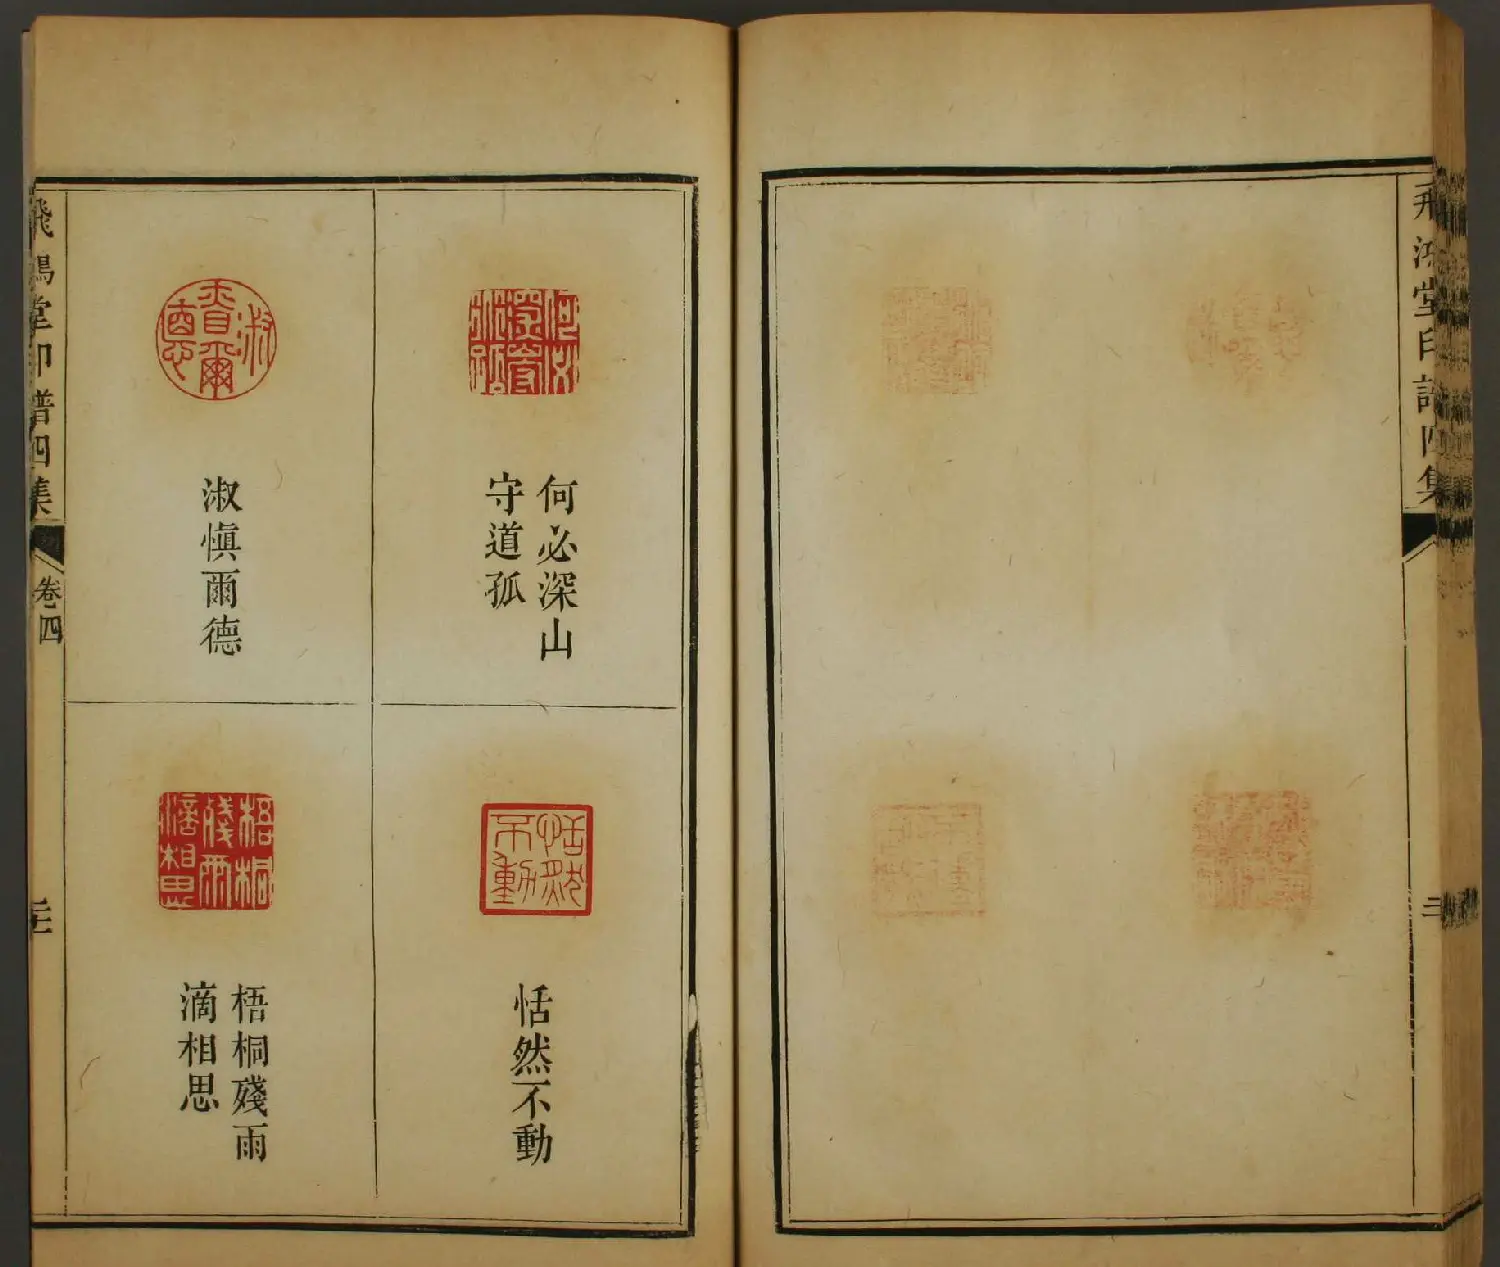 飛鴻堂印譜四集
二
何必深山
守道孤
恬然不動
淑慎爾德
梧桐殘雨
滴相思
飛鴻堂印譜四集
卷四